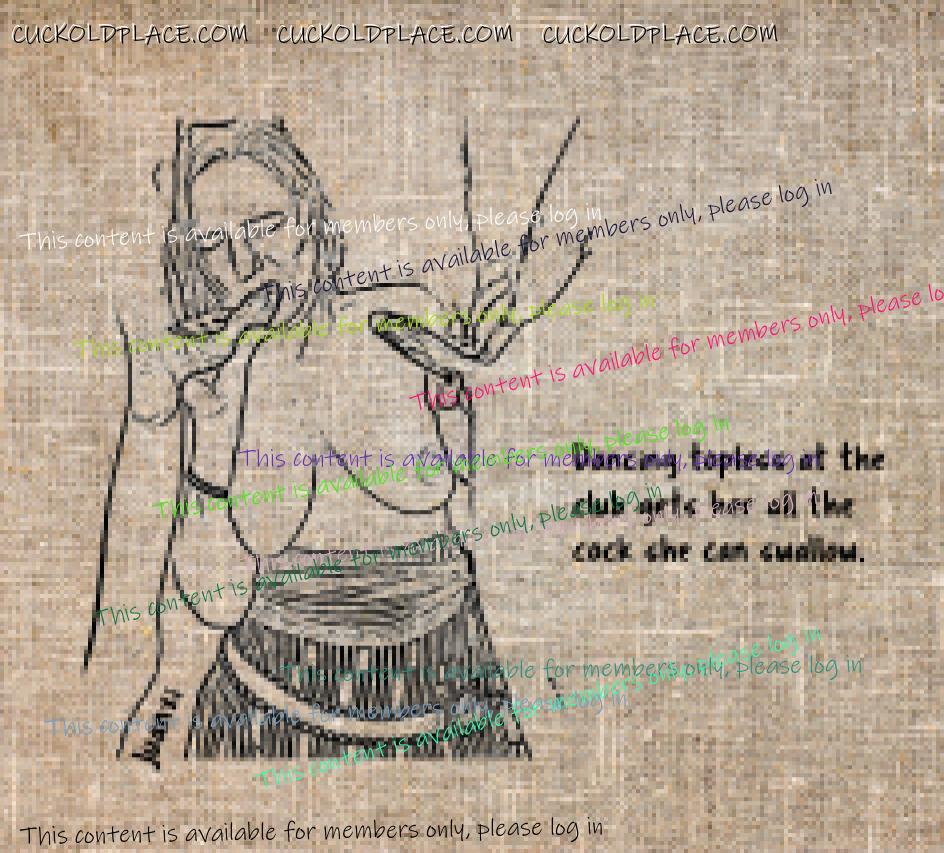 CUCKOLDPLACE.COM CUCKOLDPLACE.COM CUCKOLDPLACE.COM
This content is available for members only, please log in
This content is available for members only, please log in
This content is available for members only, please log in
This content is available for members only, please lo
This content is available for members only, please log in
This content is available for members only, please log in
at the
club gets her all the
cock she can swallow.
This content is available for members only, please log in
please log in
This content is available for members only, please log in
This content is available for members only, please log in
This content is available for members only, please log in
This content is available for members only, please log in